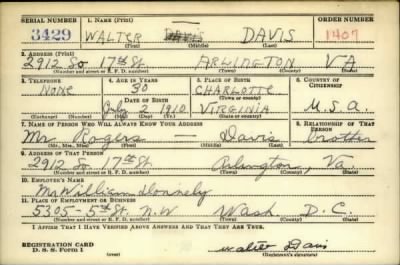 SERIAL NUMBER 1. NAME (Print) ORDER NUMBER
3429 WALTER DAVIS DAVIS 1407
(First) (Middle) (Last)
2. ADDRESS (Print)
2912 So 17th St ARLINGTON VA
(Number and street or R. F. D. number) (Town) (County) (State)
3. TELEPHONE 4. AGE IN YEARS 5. PLACE OF BIRTH 6. COUNTRY OF CITIZENSHIP
NONE 30 CHARLOTTE
DATE OF BIRTH (Town or county)
July 2 1910 VIRGINIA U.S.A.
(Exchange) (Number) (Mo.) (Day) (Yr.) (State or country)
7. NAME OF PERSON WHO WILL ALWAYS KNOW YOUR ADDRESS 8. RELATIONSHIP OF THAT PERSON
Mr Rogers — Davis brother
(Mr., Mrs., Miss) (First) (Middle) (Last)
9. ADDRESS OF THAT PERSON
2912 So 17th St Arlington, Va
(Number and street or R. F. D. number) (Town) (County) (State)
10. EMPLOYER'S NAME
Mr William Donnely
11. PLACE OF EMPLOYMENT OR BUSINESS
5305 - 5th St N.W Wash. D.C.
(Number and street or R. F. D. number) (Town) (County) (State)
I AFFIRM THAT I HAVE VERIFIED ABOVE ANSWERS AND THAT THEY ARE TRUE.
REGISTRATION CARD
D. S. S. Form 1 Walter Davis
(Registrant's signature)